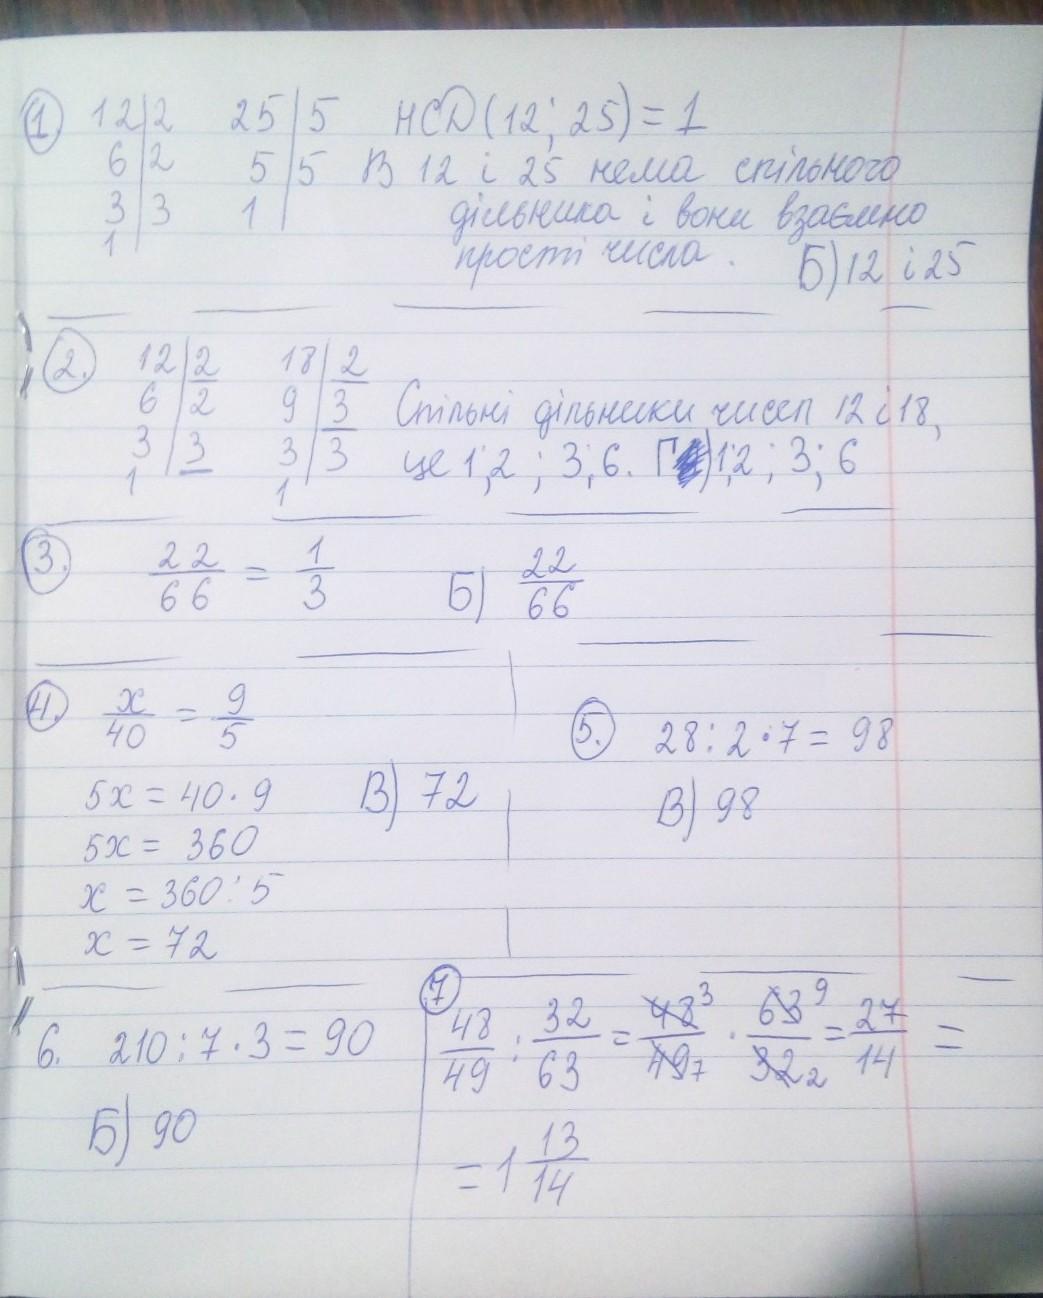 1. 12|2 25|5 НСD (12; 25) = 1
6|2 5|5 В 12 і 25 нема спільного
3|3 1| дільника і вони взаємно
1 прості числа. Б) 12 і 25
2. 12|2 18|2
6|2 9|3 Спільні дільники чисел 12 і 18,
3|3 3|3 це 1; 2; 3; 6. Г) 1; 2; 3; 6
1 1
3. 22/66 = 1/3 Б) 22/66
4. x/40 = 9/5
5x = 40 · 9 В) 72
5x = 360
x = 360 : 5
x = 72
5. 28 : 2 · 7 = 98
В) 98
6. 210 : 7 · 3 = 90
Б) 90
7 48/49 : 32/63 = 48 3/49 7 · 63 9/32 2 = 27/14 =
= 1 13/14